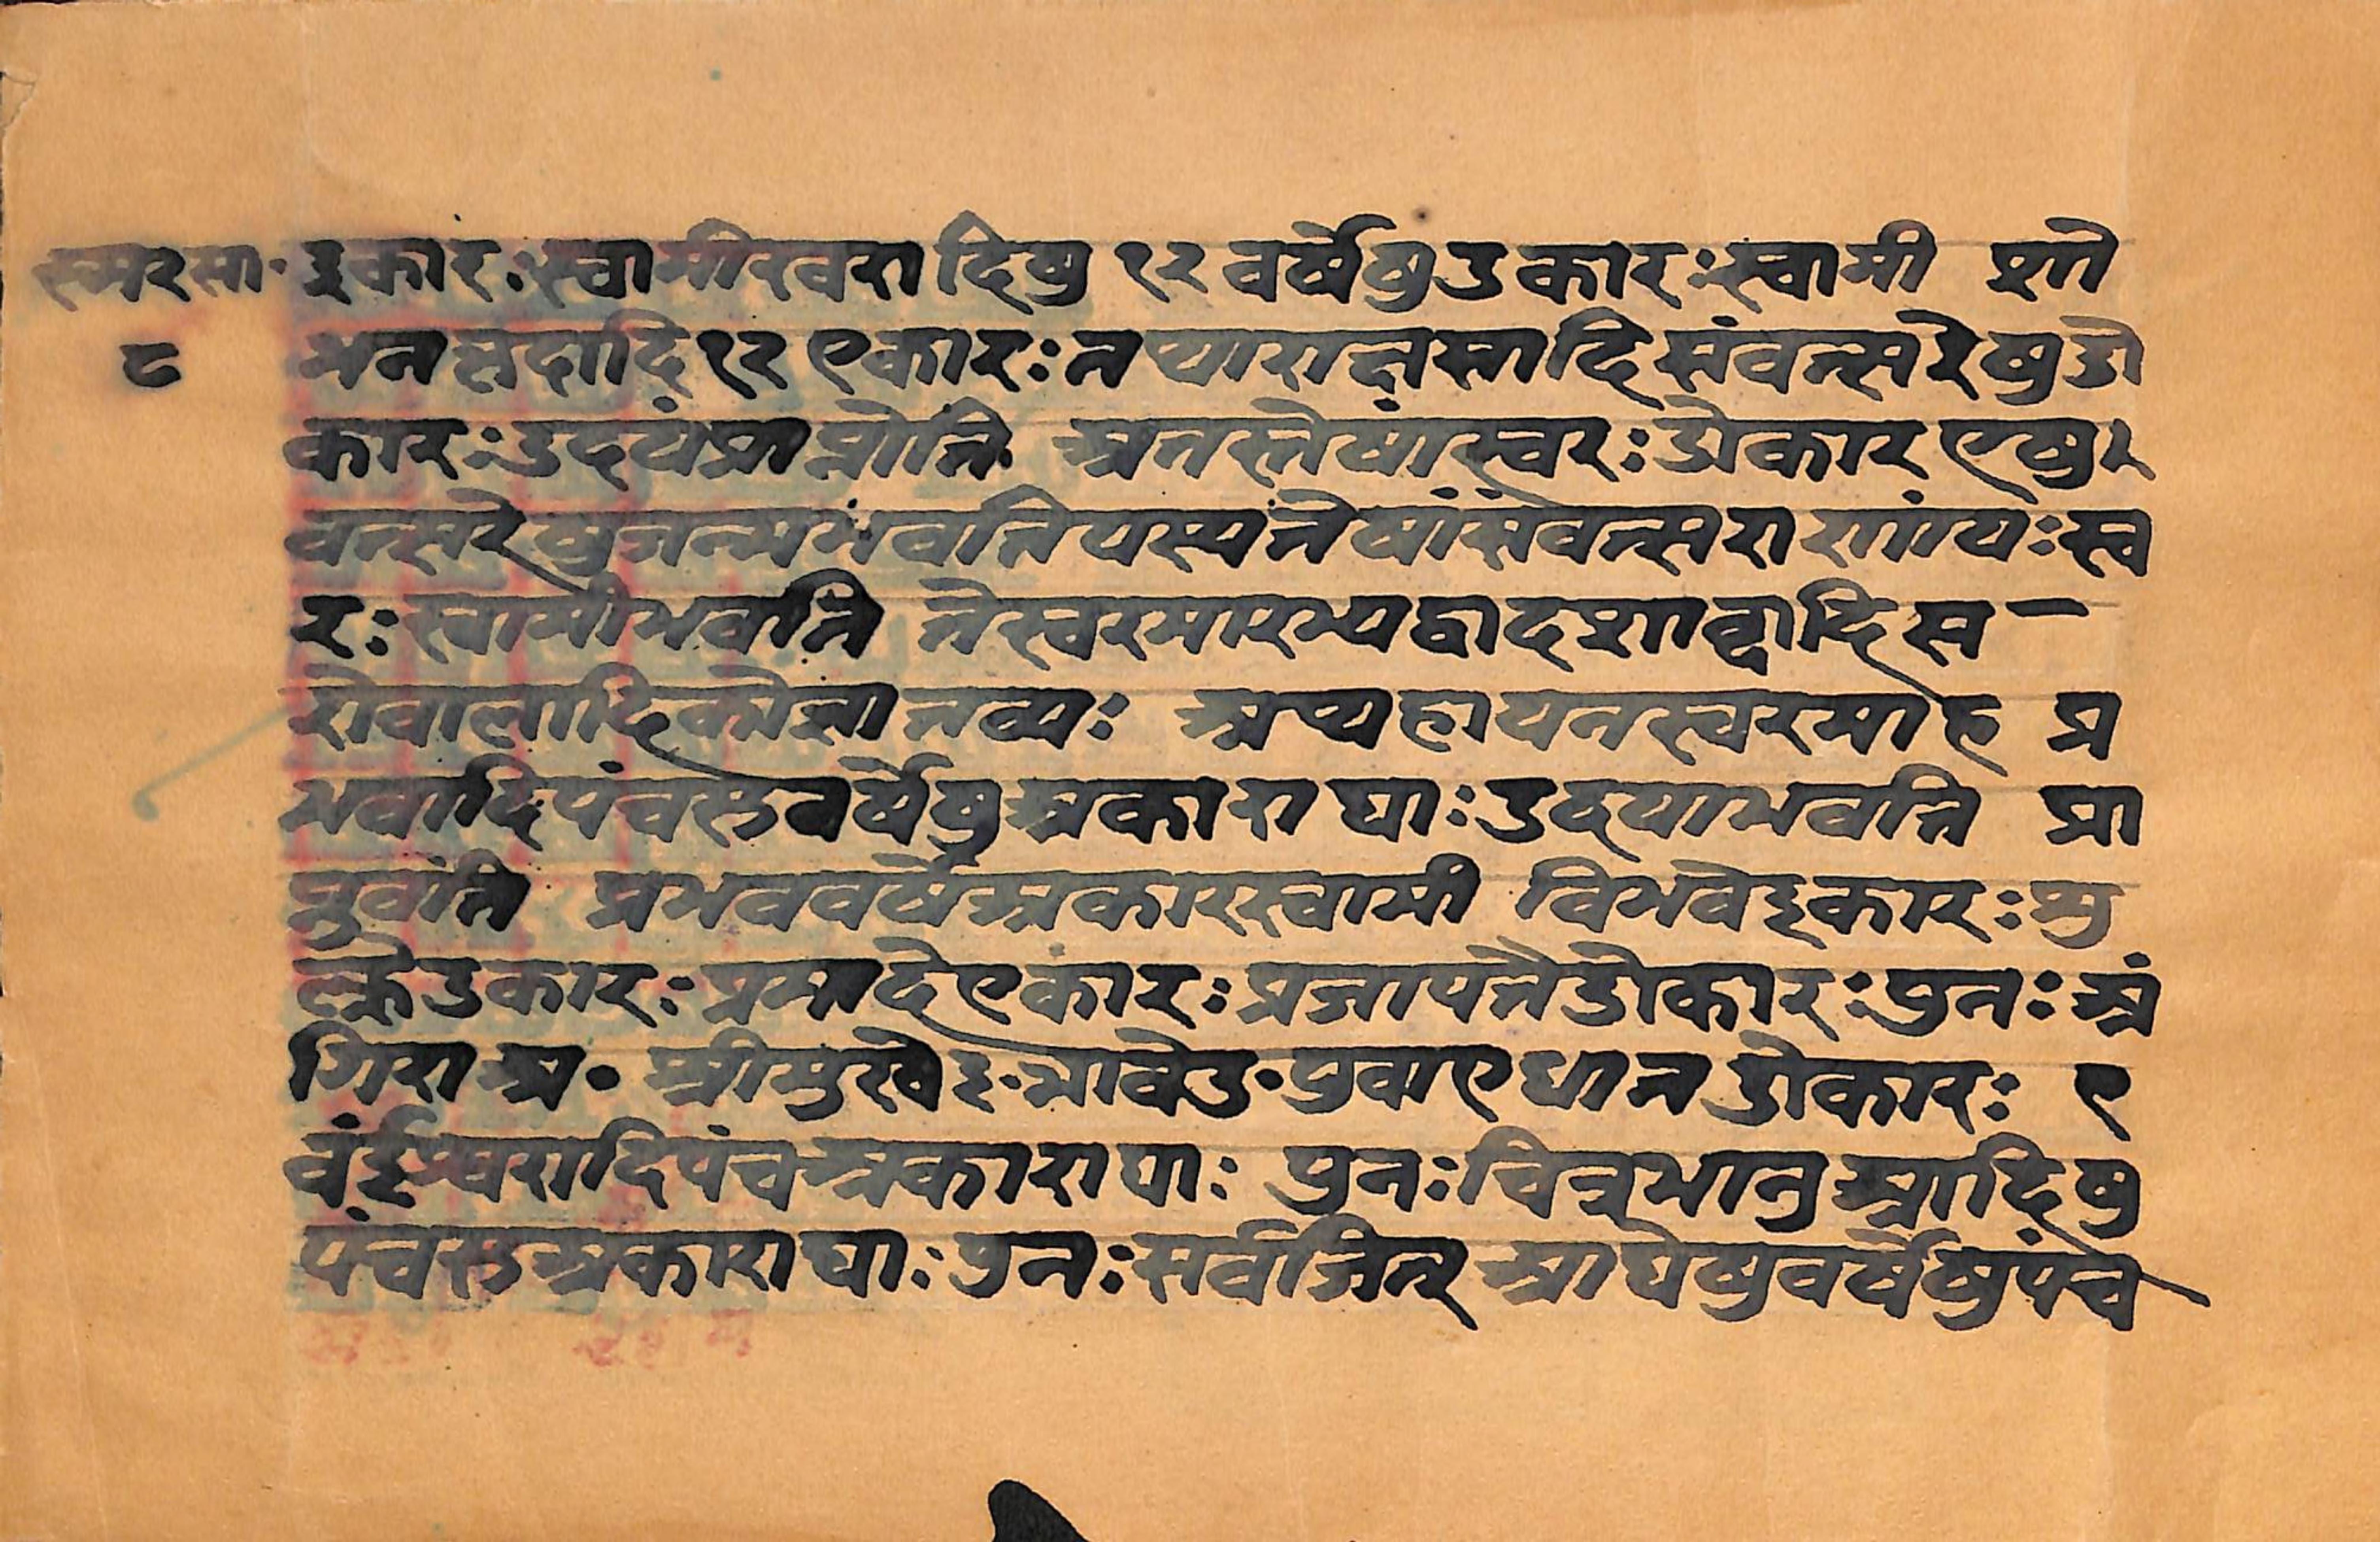 स्मरसा॰ इकारःस्वामीरवरादिषु १२ वर्षेषुउकारःस्वामी शो
भनकृदादि१२ एकारः तथाराक्षसादिसंवत्सरेषुओ
कारःउदयंप्राप्नोति अतस्तेषांस्वरःओकार एषु
वत्सरेषुजन्मभवतियस्यतेषांसंवत्सराराणांयःस्व
रःस्वामीभवति तेस्वरमारभ्यद्वादशाब्दादिस
रोवालादिकोज्ञातव्यः अथहायनस्वरमाह प्र
भवादिपंचसुवर्षेषुअकाराद्याःउदयाभवति प्रा
प्नुवंति प्रभववर्षेअकारस्वामी विभवेइकारःशु
क्लेउकारःप्रमादेएकारःप्रजापतैओकारःपुनःअं
गिरा अ॰ श्रीमुखेइ॰भावेउ॰युवाएधातओकारः ए
वंईश्वरादिपंचअकाराद्याः पुनःचित्रभानुआदिषु
पंचसुअकाराद्याःपुनःसर्वजित् आद्येषुवर्षेषुपंच
८